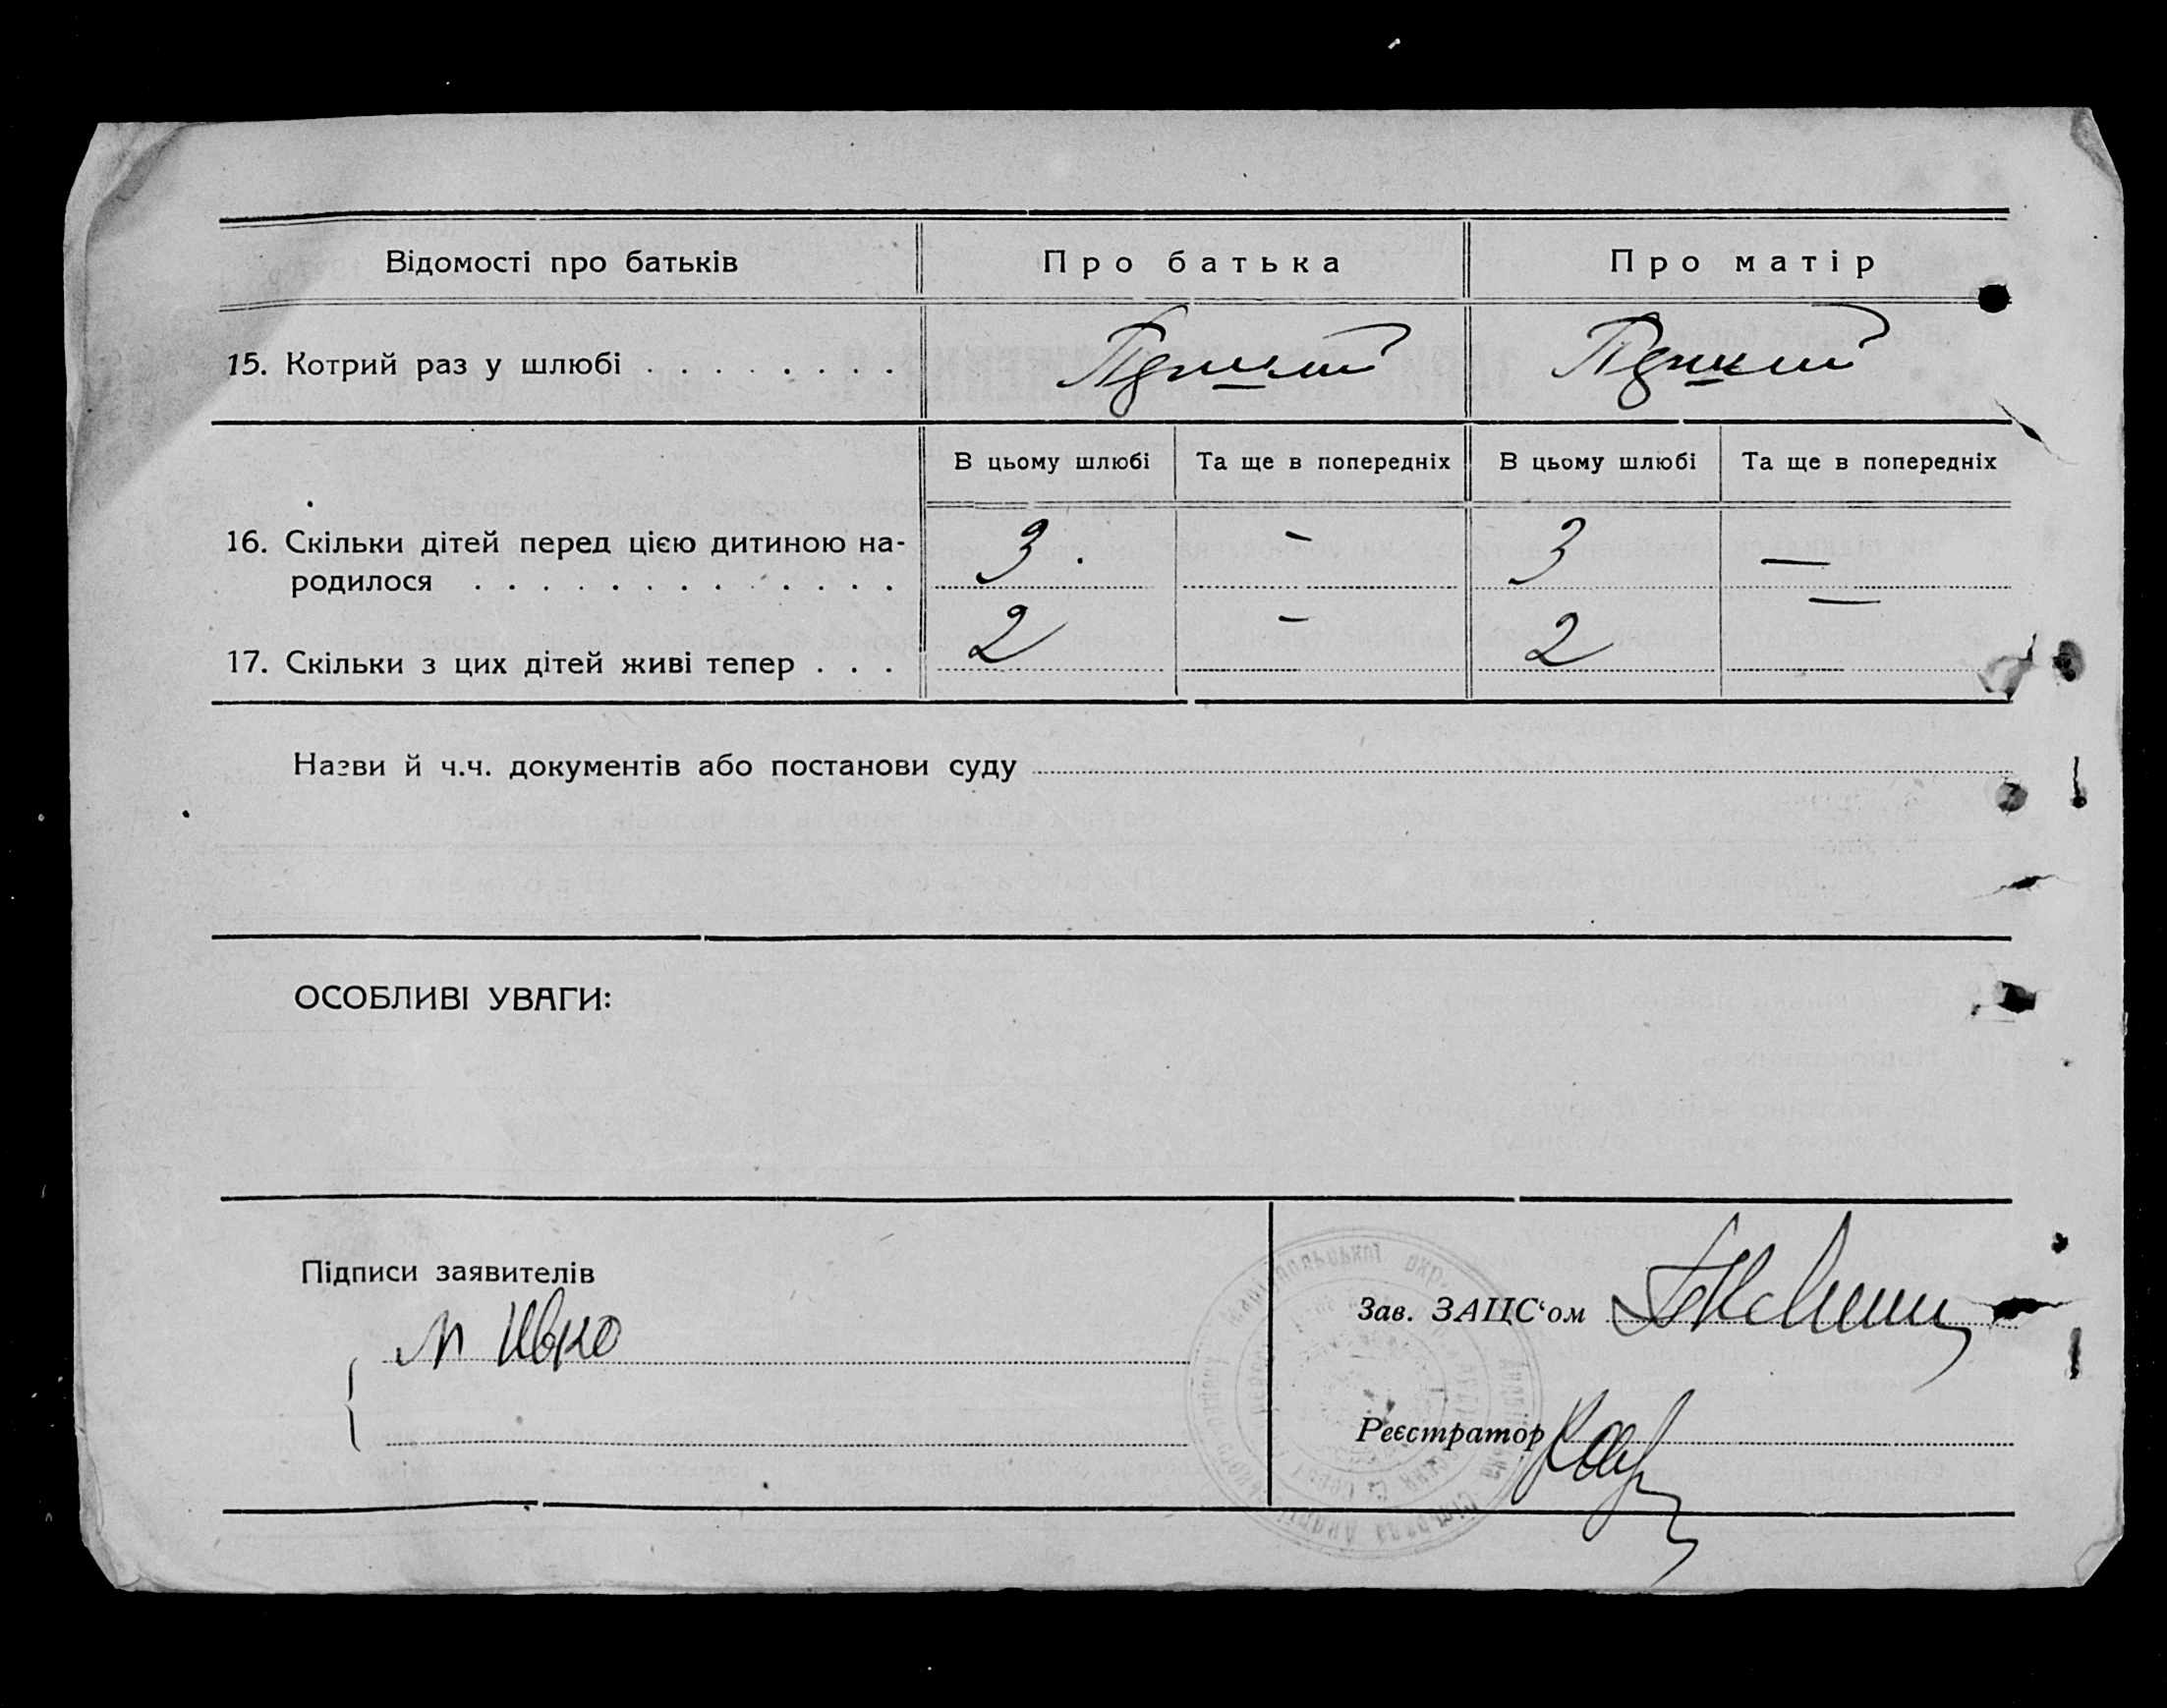 Відомості про батьків Про батька Про матір
15. Котрий раз у шлюбі . . . . . . . . Перший Перший
В цьому шлюбі Та ще в попередніх В цьому шлюбі Та ще в попередніх
16. Скільки дітей перед цією дитиною на-
родилося . . . . . . . . . . . . . 3 – 3 —
17. Скільки з цих дітей живі тепер . . . 2 – 2 —
Назви й ч.ч. документів або постанови суду
ОСОБЛИВІ УВАГИ:
Підписи заявителів
Зав. ЗАЦС‘ом
Реєстратор